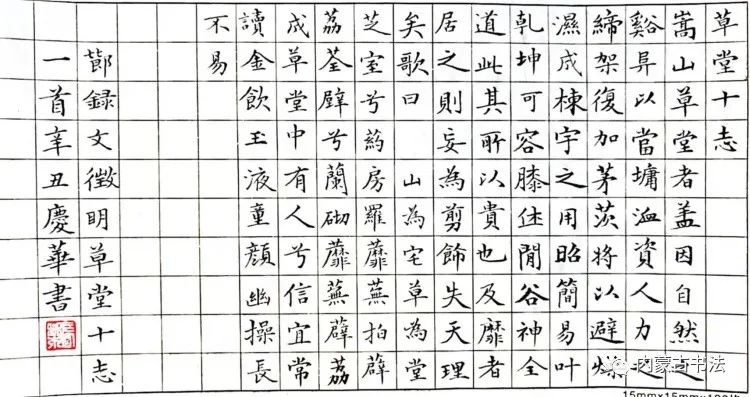 草堂十志
嵩山草堂者盖因自然
谿异以當墉洫資人力
締架復加茅茨將以避燥
濕成棟宇之用昭簡易叶
乹坤可容膝休閒谷神全
道此其所以貴也及靡者
居之則妄為剪飾失天理
矣歌曰 山為宅草為堂
芝室兮葯房羅蘼蕪拍薜
荔荃壁兮蘭砌蘼蕪薜荔
成草堂中有人兮信宜常
讀金飲玉液童顏幽操長
不易
節錄文徵明草堂十志
一首辛丑慶華書
内蒙古书法